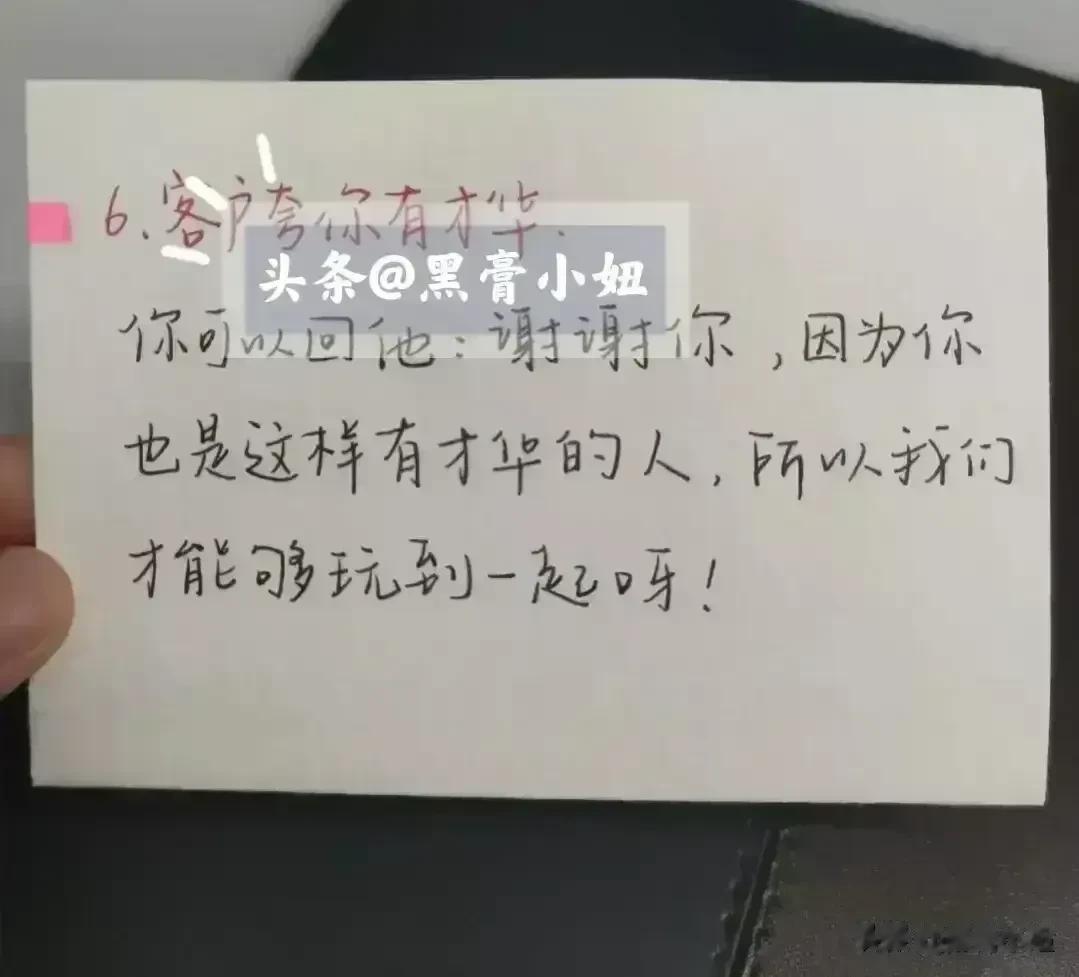 6.客户夸你有才华.
头条@黑膏小妞
你可以回他：谢谢你，因为你
也是这样有才华的人，所以我们
才能够玩到一起呀！